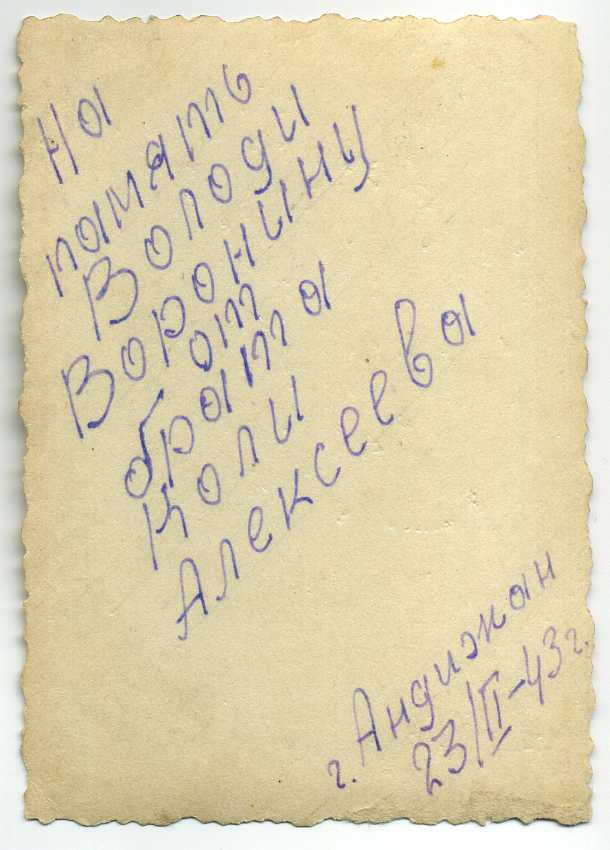 На
память
Володи
Воронину
от
брата
Коли
Алексеева
г. Андижан
23/II-43 г.